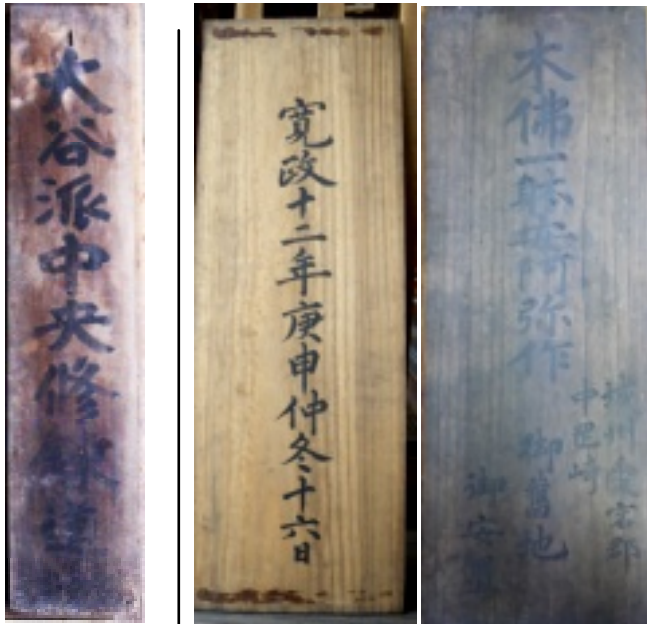 大谷派中央修練道
寛政十二年庚申仲冬十六日
木佛一躰安阿弥作
御舊地
中邑崎
御安置